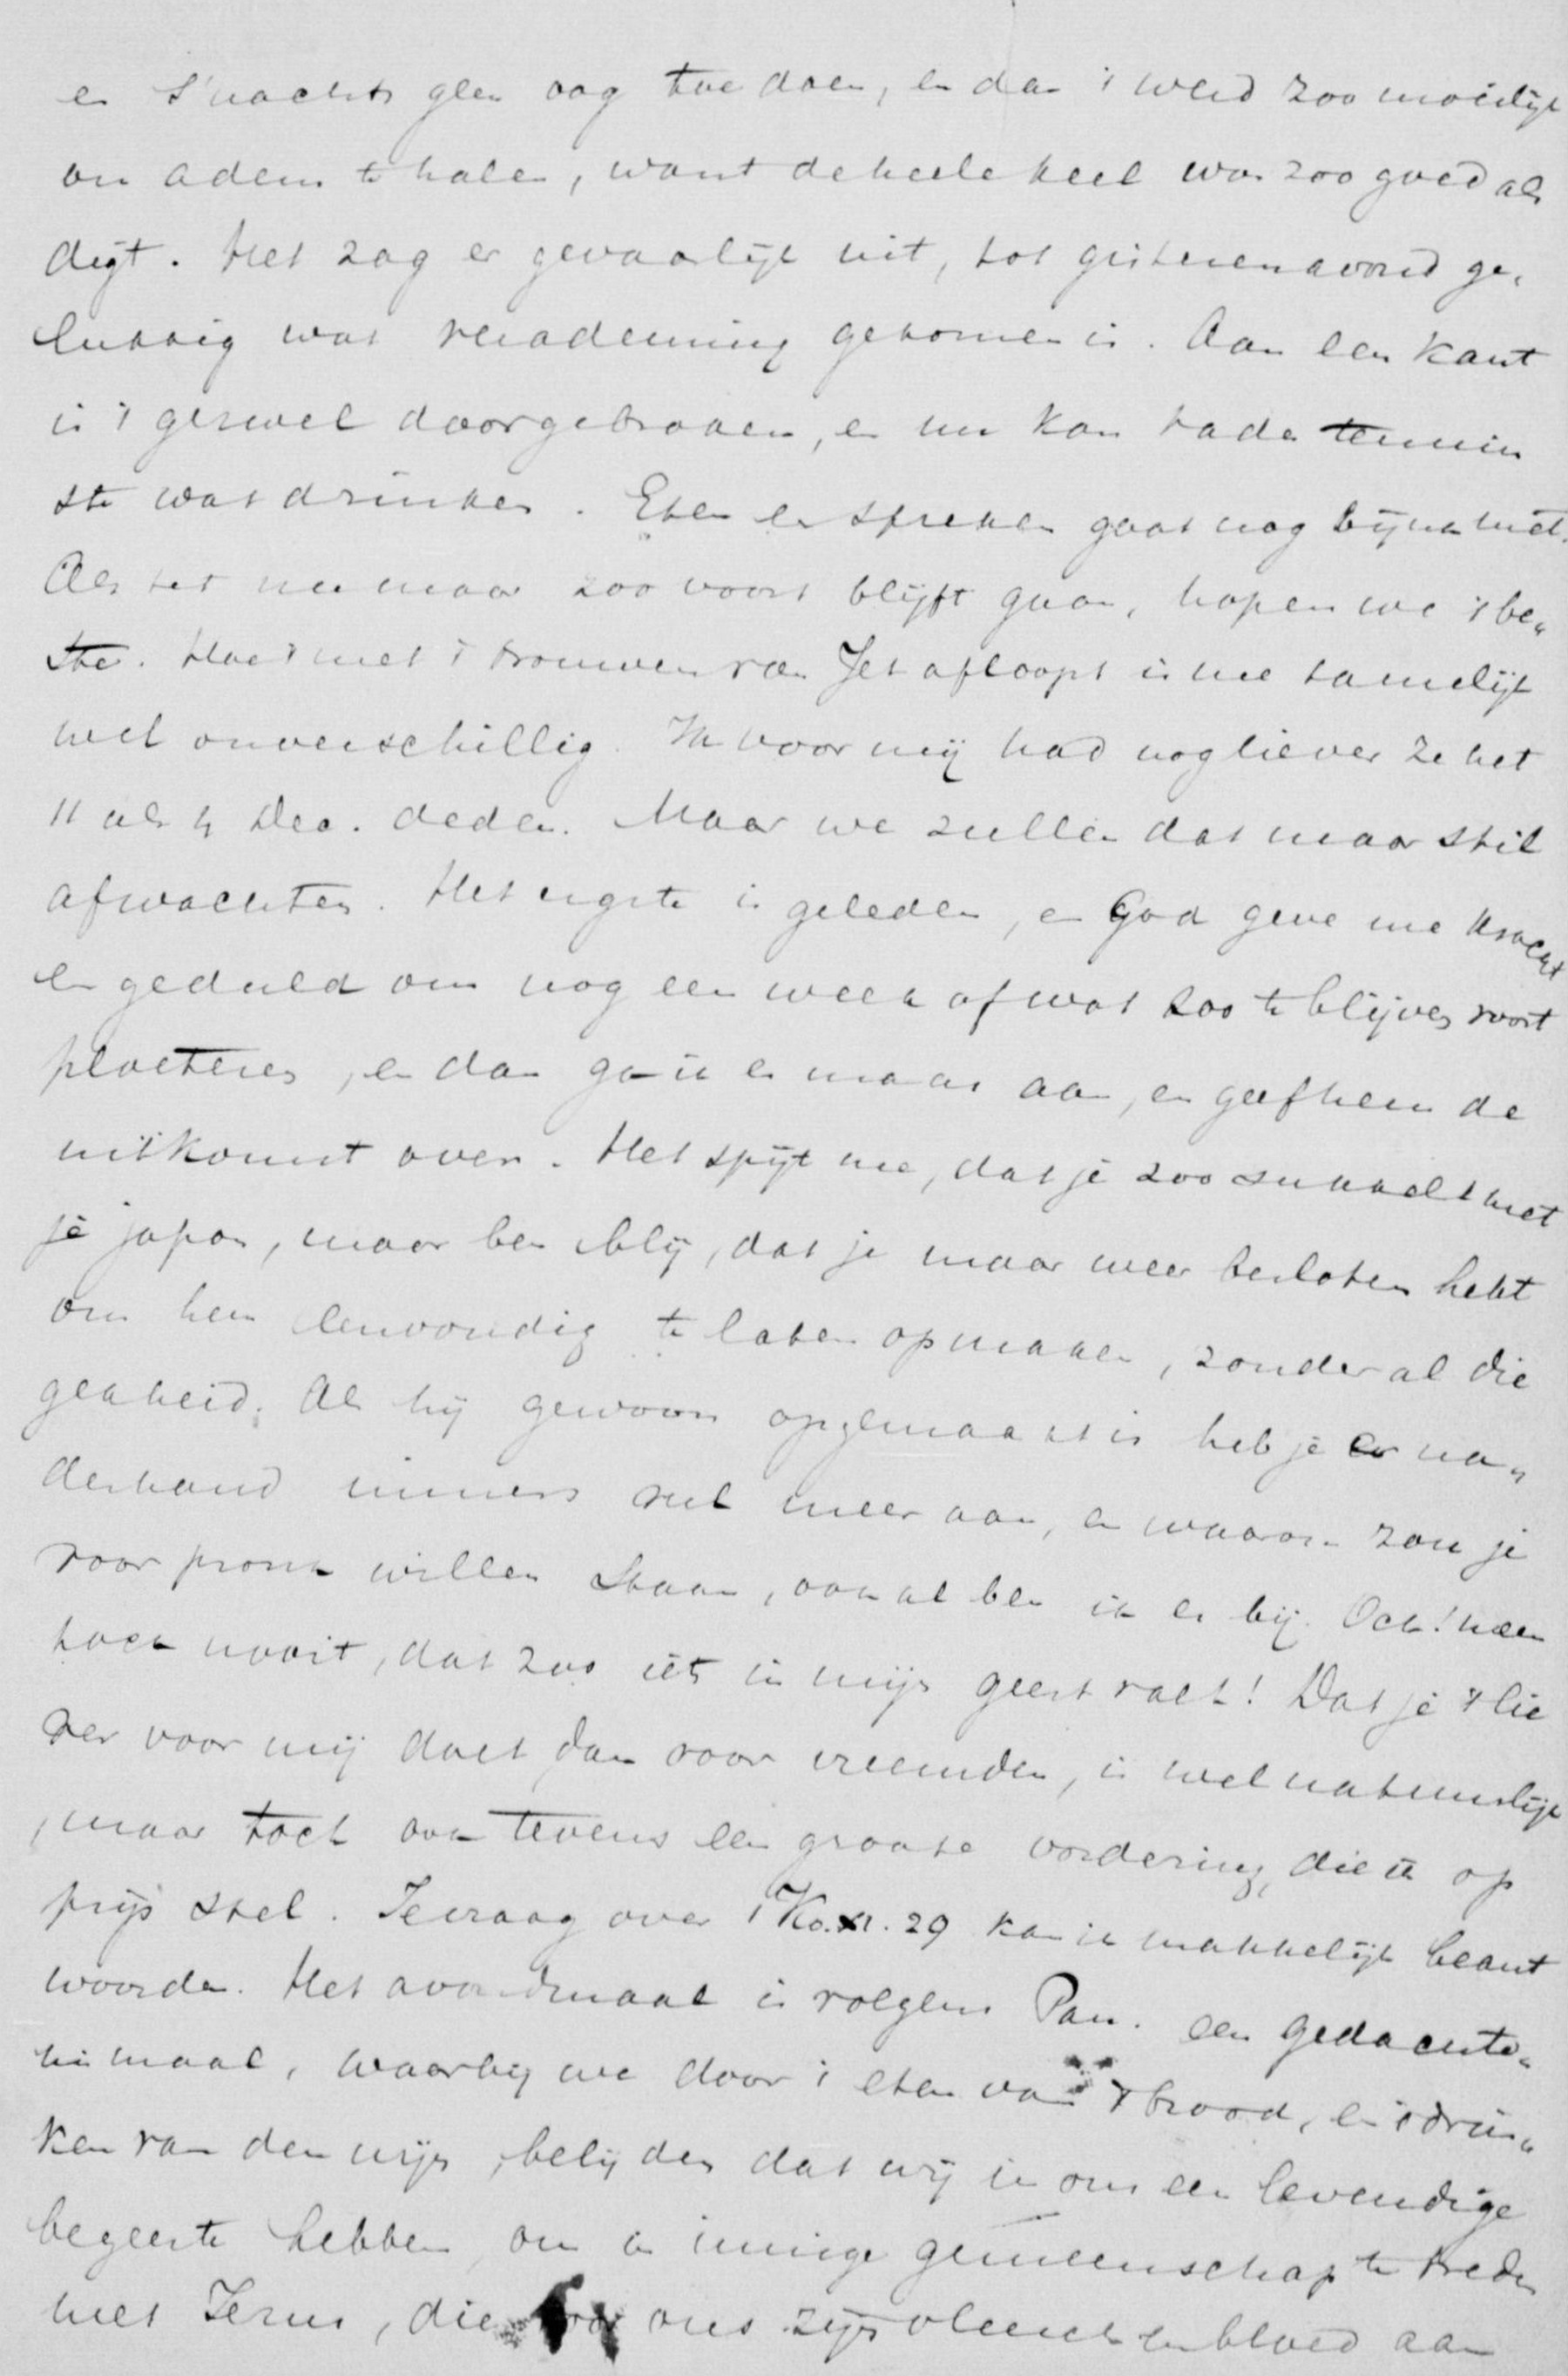 en s'nachts geen oog toe doen, en dan 't werd zoo moeilijk
om adem te halen, want de heele keel was zoo goed als
digt. Het zag er gevaarlijk uit, tot gisterenavond ge„
lukkig wat verademing gekomen is. Aan een kant
is 't geswel doorgebroken, en nu kan vader tenmin
ste wat drinken. Eten en spreken gaat nog bijna niet.
Als het nu maar zoo voort blijft gaan, hopen we 't be„
ste. Hoe 't met 't trouwen van Jet afloopt is me tamelijk
wel onverschillig. Ik voor mij had nog liever ze het
11 als 4 Dec. deden. Maar we zullen dat maar stil
afwachten. Het ergste is geleden, en God geve me kracht
en geduld om nog een week of wat zoo te blijven voort
ploeteren, en dan ga ik er maar aan, en geef hem de
uitkomst over. Het spijt me, dat je zoo sukkelt met
je japon, maar ben blij, dat je maar weer besloten hebt
om hem eenvoudig te laten opmaken, zonder al die
gekheid. Als hij gewoon opgemaakt is heb je er na„
derhand immers veel meer aan, en waarom zou je
voor pronk willen staan, ook al ben ik er bij. Och! neen
toch nooit, dat zoo iets in mijn geest valt! Dat je 't lie
ver voor mij doet dan voor vreemden, is wel natuurlijk
, maar toch ook tevens een groote vordering, die ik op
prijs stel. Je vraag over 1 Ko. XI. 29 kan ik makkelijk beant
woorden. Het avondmaal is volgens Pau. een gedachte„
nismaal, waarbij we door 't eten van 't brood, en 't drin„
ken van den wijn, belijden dat wij in ons een levendige
begeerte hebben om in innige gemeenschap te treden
met Jezus, die voor ons zijn vleesch en bloed aan